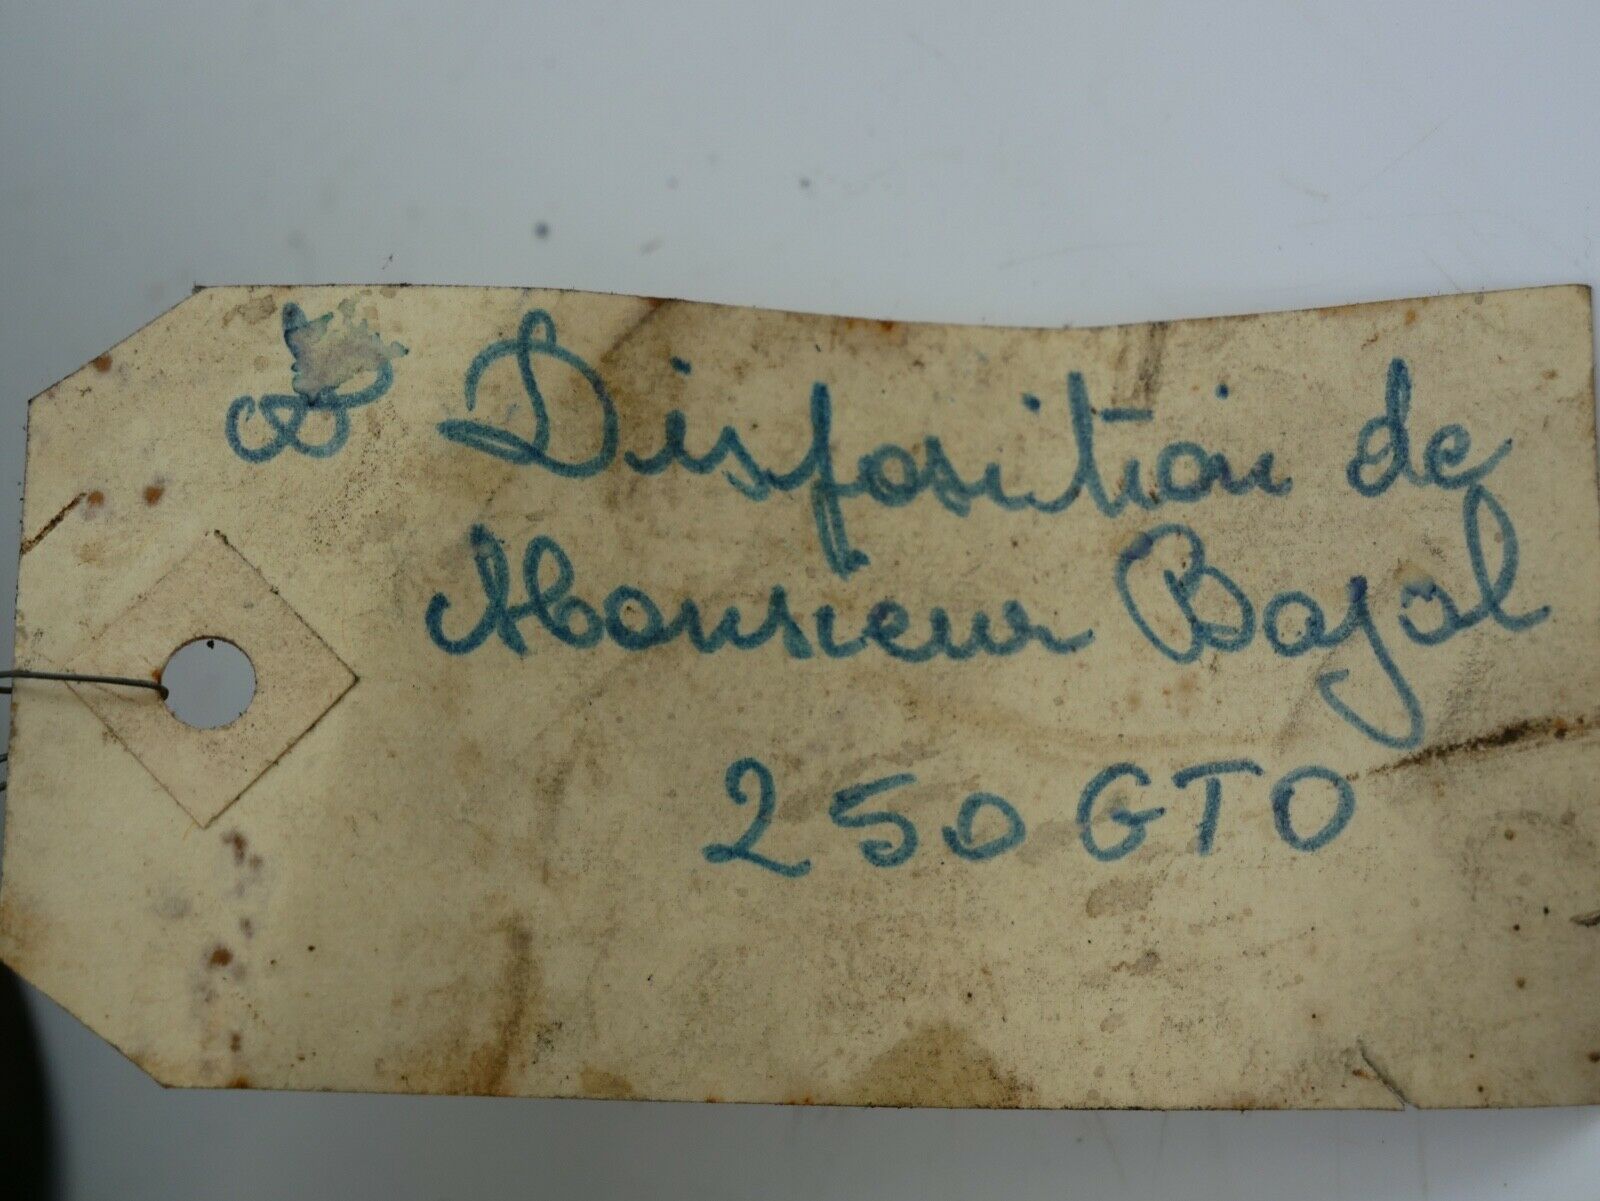 Disposition de
Monsieur Bajol
250 GTO